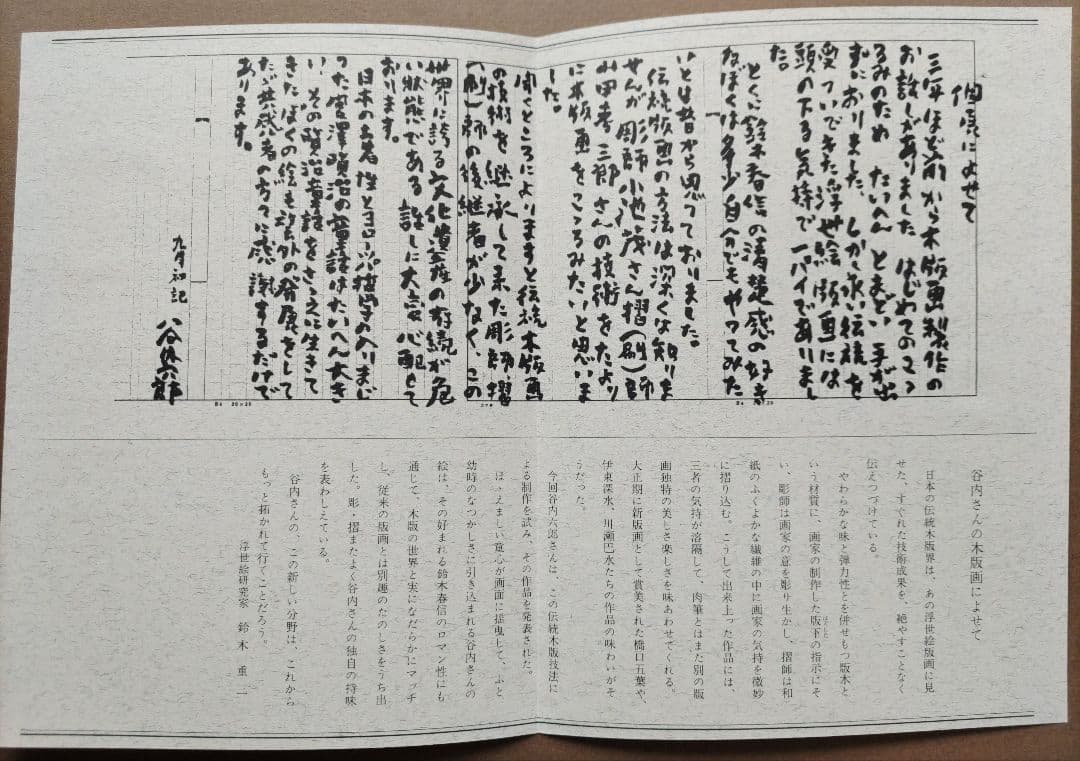 個展によせて
三年ほど前から木版画製作の
お話しがありました はじめてのこころ
みのため たいへん とまどい 手が出
ずにおりました、しかし永い伝統を
受ついできた浮世絵版画には
頭の下る気持で一パイでありまし
た
とくに鈴木春信の清楚感の好き
なぼくは多少自分でもやってみた
いとは昔から思っておりました
伝統版画の方法は深くは知りま
せんが彫師小池茂さん摺(刷)師
小田春三郎さんの技術をたより
に木版画をこころみたいと思いま
した。
聞くところによりますと伝統木版画
の技術を継承して来た彫師、摺
(刷)師の後継者が少なく、この
世界に誇る文化遺産の存続が危
い状態である話しに大変心配して
おります。
日本の土着性とヨーロッパ哲学の入りまじ
った宮澤賢治の童話はたいへん大き
い その賢治童話をささえに生きて
きたぼくの絵も予外の発展をして
ただ共感者の方々に感謝するだけで
あります。
九月初記
谷内六郎
B4 20×20
コクヨ
B4 20×20
谷内さんの木版画によせて
日本の伝統木版界は、あの浮世絵版画に見
せた、すぐれた技術成果を、絶やすことなく
伝えつづけている。
やわらかな味と弾力性とを併せもつ版木と
いう材質に、画家の制作した版下の指示にそ
はんした
い、彫師は画家の意を彫り生かし、摺師は和
紙のふくよかな繊維の中に画家の気持を微妙
に摺り込む。こうして出来上った作品には、
三者の気持が溶融して、肉筆とはまた別の版
画独特の美しさ楽しさを味あわせてくれる。
大正期に新版画として賞美された橋口五葉や、
伊東深水、川瀬巴水たちの作品の味わいがそ
うだった。
今回谷内六郎さんは、この伝統木版技法に
よる制作を試み、その作品を発表された。
ほゝえましい童心が画面に揺曳して、ふと
幼時のなつかしさに引き込まれる谷内さんの
絵は、その好まれる鈴木春信のロマン性にも
通じて、木版の世界と実になだらかにマッチ
し、従来の版画とは別趣のたのしさをうち出
した。彫・摺またよく谷内さんの独自の持味
を表わしえている。
谷内さんの、この新しい分野は、これから
もっと拓かれて行くことだろう。
浮世絵研究家 鈴木重三